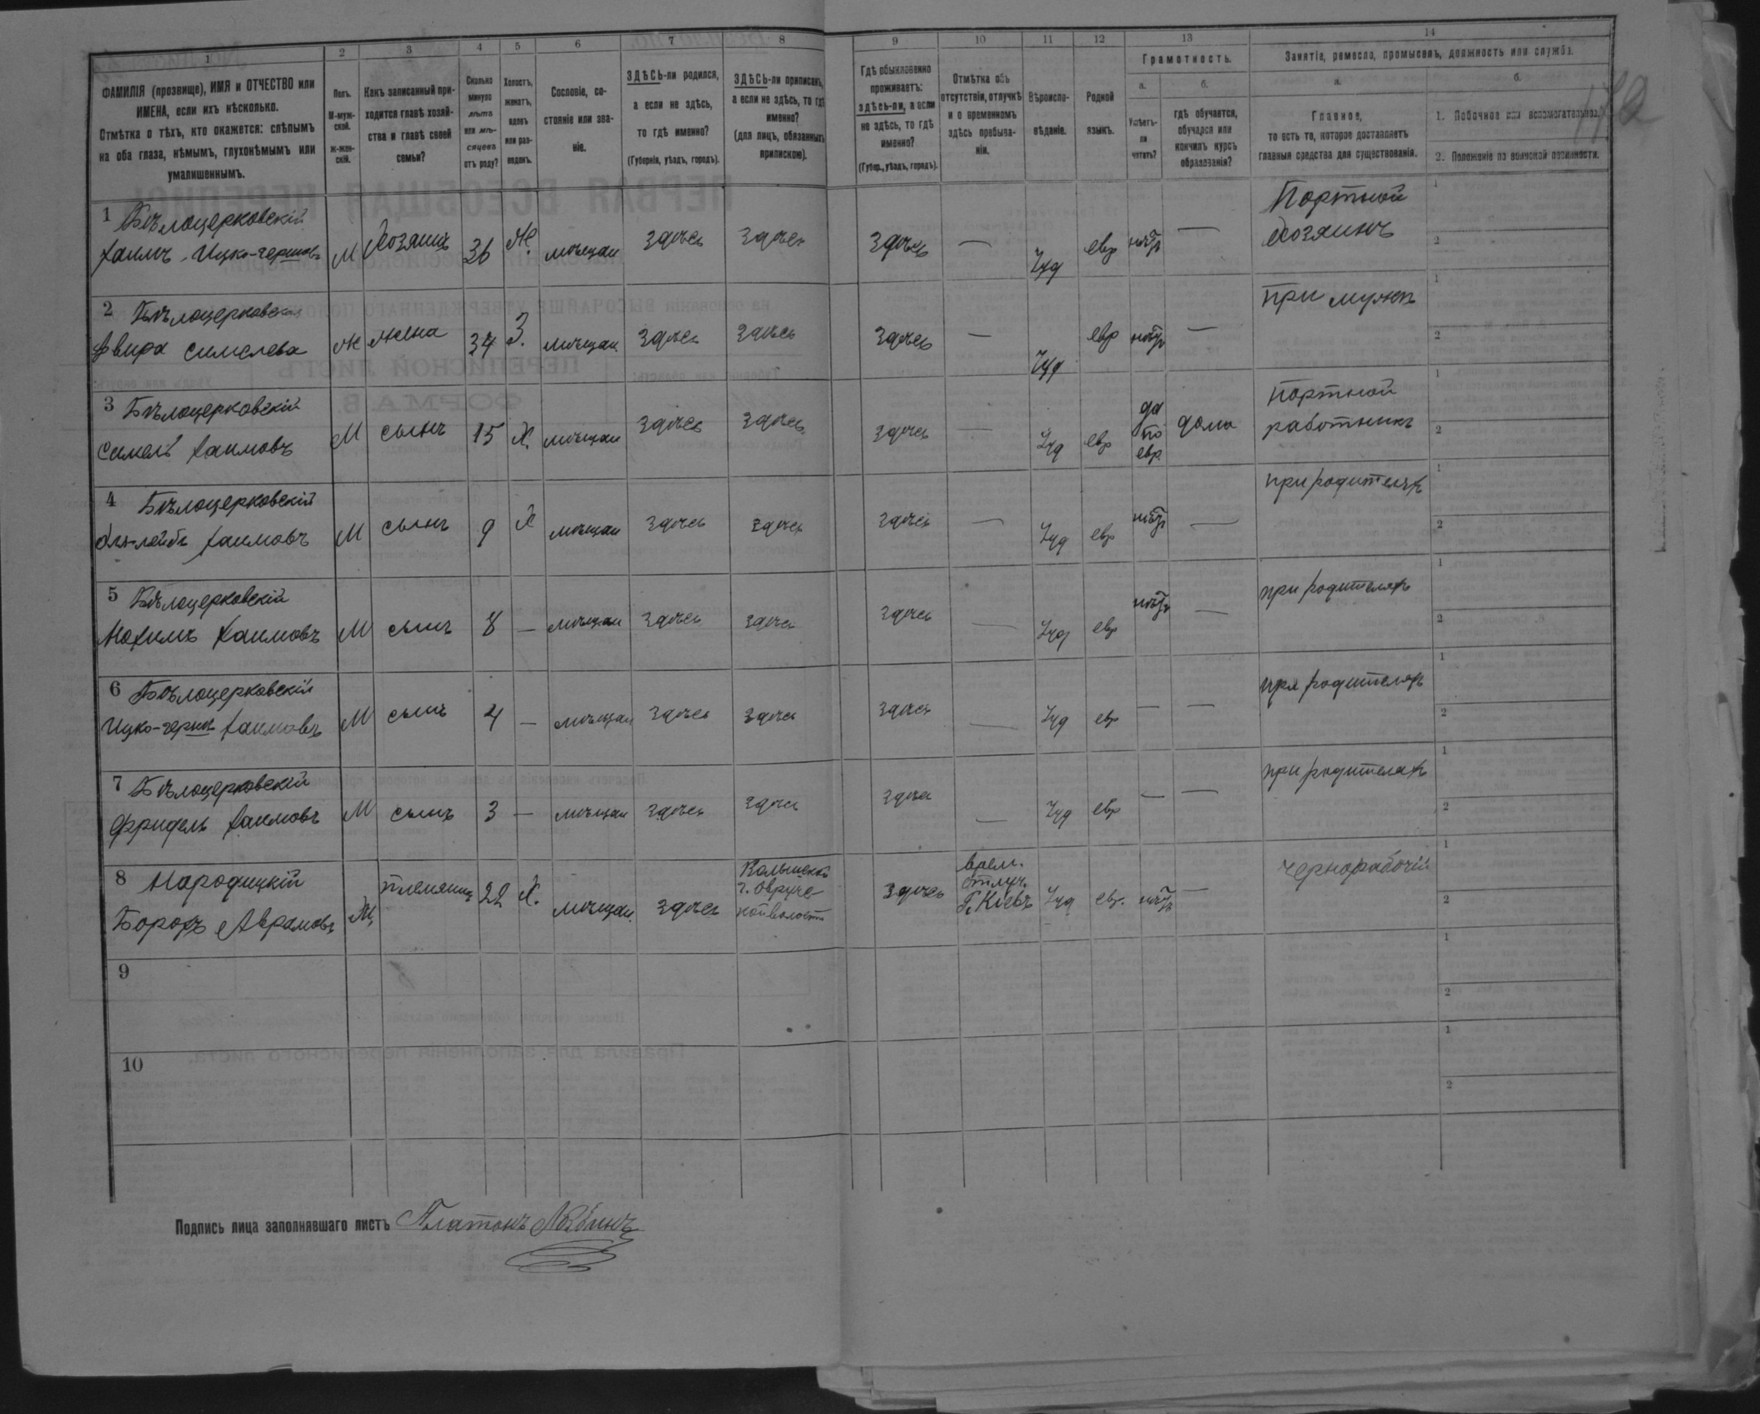 1 2 3 4 5 6 7 8 9 10 11 12 13 14
ФАМИЛІЯ (прозвище), ИМЯ и ОТЧЕСТВО или ИМЕНА, если ихъ нѣсколько.
Отмѣтка о тѣхъ, кто окажется: слѣпымъ на оба глаза, нѣмымъ, глухонѣмымъ или умалишеннымъ.
Полъ. М-муж-ской. Ж-жен-скій.
Какъ записанный при-ходится главѣ хозяй-ства и главѣ своей семьи?
Сколько минуло лѣтъ или мѣ-сяцевъ отъ роду?
Холостъ, женатъ, вдовъ или раз-веденъ.
Сословіе, со-стояніе или зва-ніе.
ЗДѢСЬ-ли родился, а если не здѣсь, то гдѣ именно?
(Губернія, уѣздъ, городъ).
ЗДѢСЬ-ли приписанъ, а если не здѣсь, то гдѣ именно?
(для лицъ, обязанныхъ припискою).
Гдѣ обыкновенно проживаетъ: здѣсь-ли, а если не здѣсь, то гдѣ именно?
(Губер., уѣздъ, городъ).
Отмѣтка объ отсутствіи, отлучкѣ и о временномъ здѣсь пребыва-ніи.
Вѣроиспо-вѣданіе.
Родной языкъ.
Грамотность.
а.
Умѣетъ-ли читать?
б.
гдѣ обучается, обучался или кончилъ курсъ образованія?
Занятіе, ремесло, промыселъ, должность или служба.
а.
Главное,
то есть то, которое доставляетъ главныя средства для существованія.
б.
1. Побочное или вспомогательное.
2. Положеніе по воинской повинности.
1 Бѣлоцерковскій Портной
Хаимъ Ицко-Гершковъ М Хозяинъ 36 Ж. мѣщан здѣсь здѣсь здѣсь — Іуд евр нѣтъ — хозяинъ
2 Бѣлоцерковская при мужѣ
Двира Симелева Ж жена 34 З. мѣщан здѣсь здѣсь здѣсь — Іуд евр нѣтъ —
3 Бѣлоцерковскій Портной
Симель Хаимовъ М сынъ 15 Х. мѣщан здѣсь здѣсь здѣсь — Іуд евр да по евр дома работникъ
4 Бѣлоцерковскій при родителяхъ
Хаимовъ М сынъ 9 Х мѣщан здѣсь здѣсь здѣсь — Іуд евр нѣтъ —
5 Бѣлоцерковскій при родителяхъ
Нахимъ Хаимовъ М сынъ 8 — мѣщан здѣсь здѣсь здѣсь — Іуд евр нѣтъ —
6 Бѣлоцерковскій при родителяхъ
Ицко-Гершъ Хаимовъ М сынъ 4 — мѣщан здѣсь здѣсь здѣсь — Іуд евр — —
7 Бѣлоцерковскій при родителяхъ
Фридель Хаимовъ М сынъ 3 — мѣщан здѣсь здѣсь здѣсь — Іуд евр — —
8 Народицкій чернорабочій
Борохъ Аврамовъ М. племянн 22 Х. мѣщан. здѣсь г. Овруче- здѣсь врем. отлуч. Г. Кіевъ Іуд евр. нѣтъ —
9
10
Подпись лица заполнявшаго листъ Платонъ